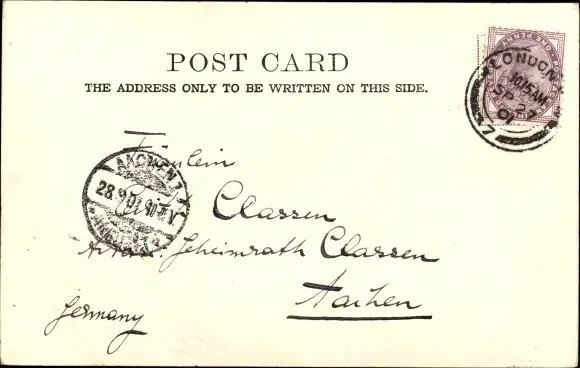 POST CARD
THE ADDRESS ONLY TO BE WRITTEN ON THIS SIDE.
LONDON
10.15 AM
SP 27
01
Fräulein
AACHEN 1
28.9.01
Classen
Geheimrath Classen
Aachen
Germany